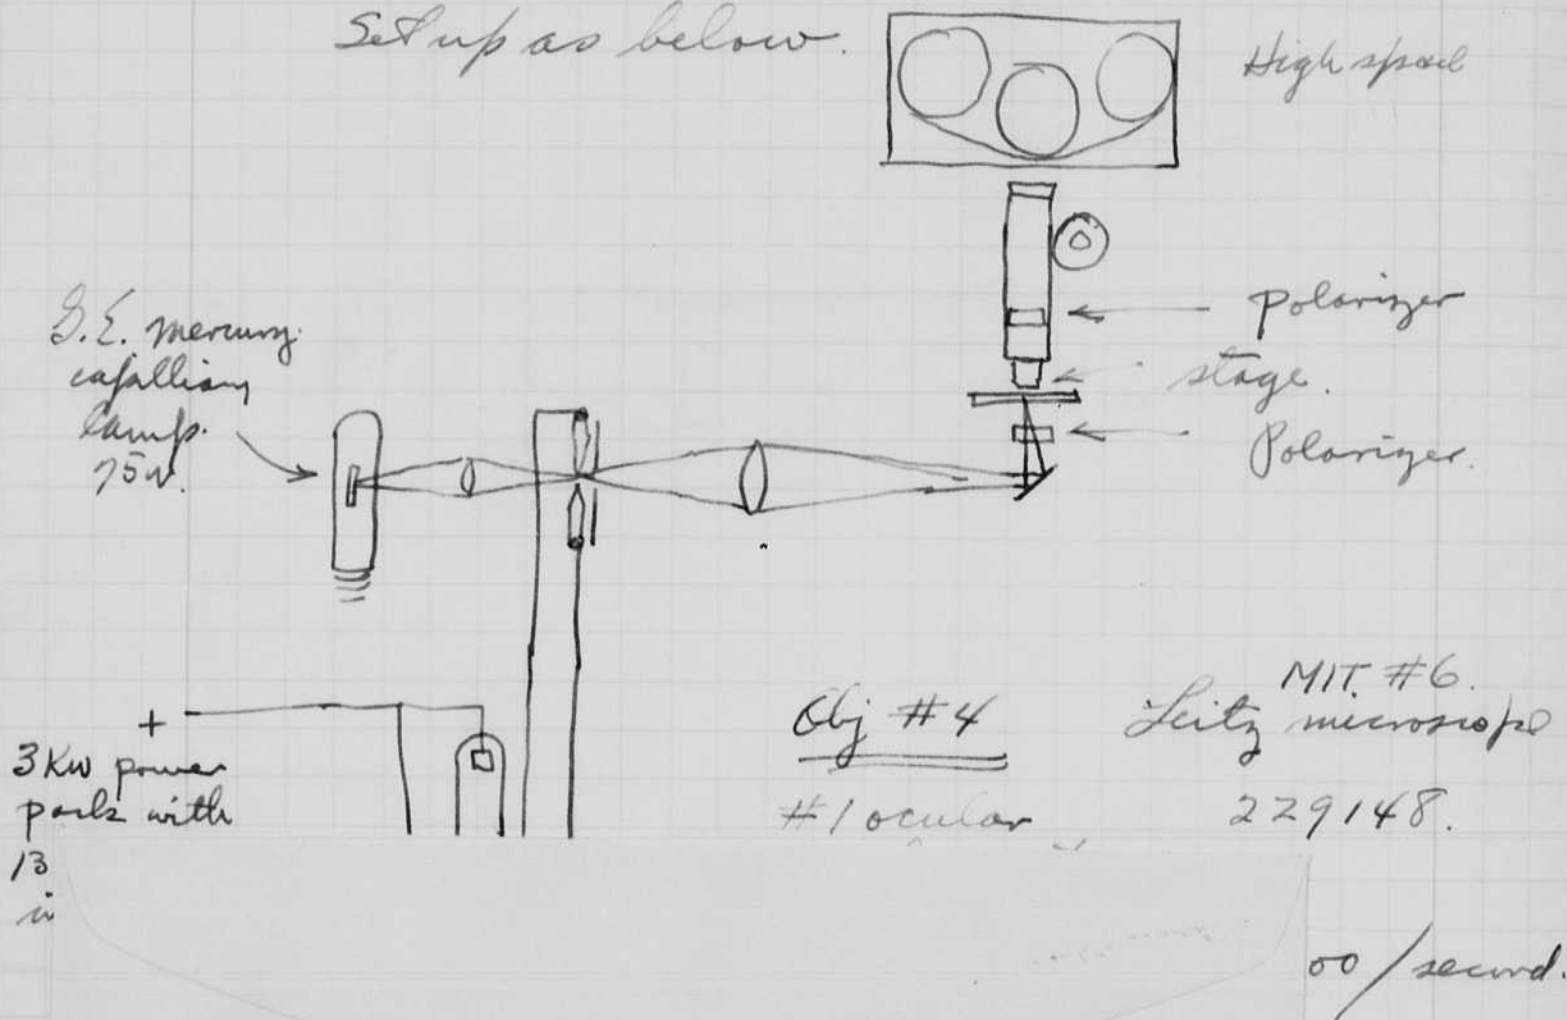 Set up as below.
High speed
G.E. mercury
capillary
lamp.
75w.
polarizer
stage.
Polarizer.
+
3 KW power
pack with
13
in
Obj #4
#1 ocular
MIT. #6.
Leitz microscope
229148.
00/second.